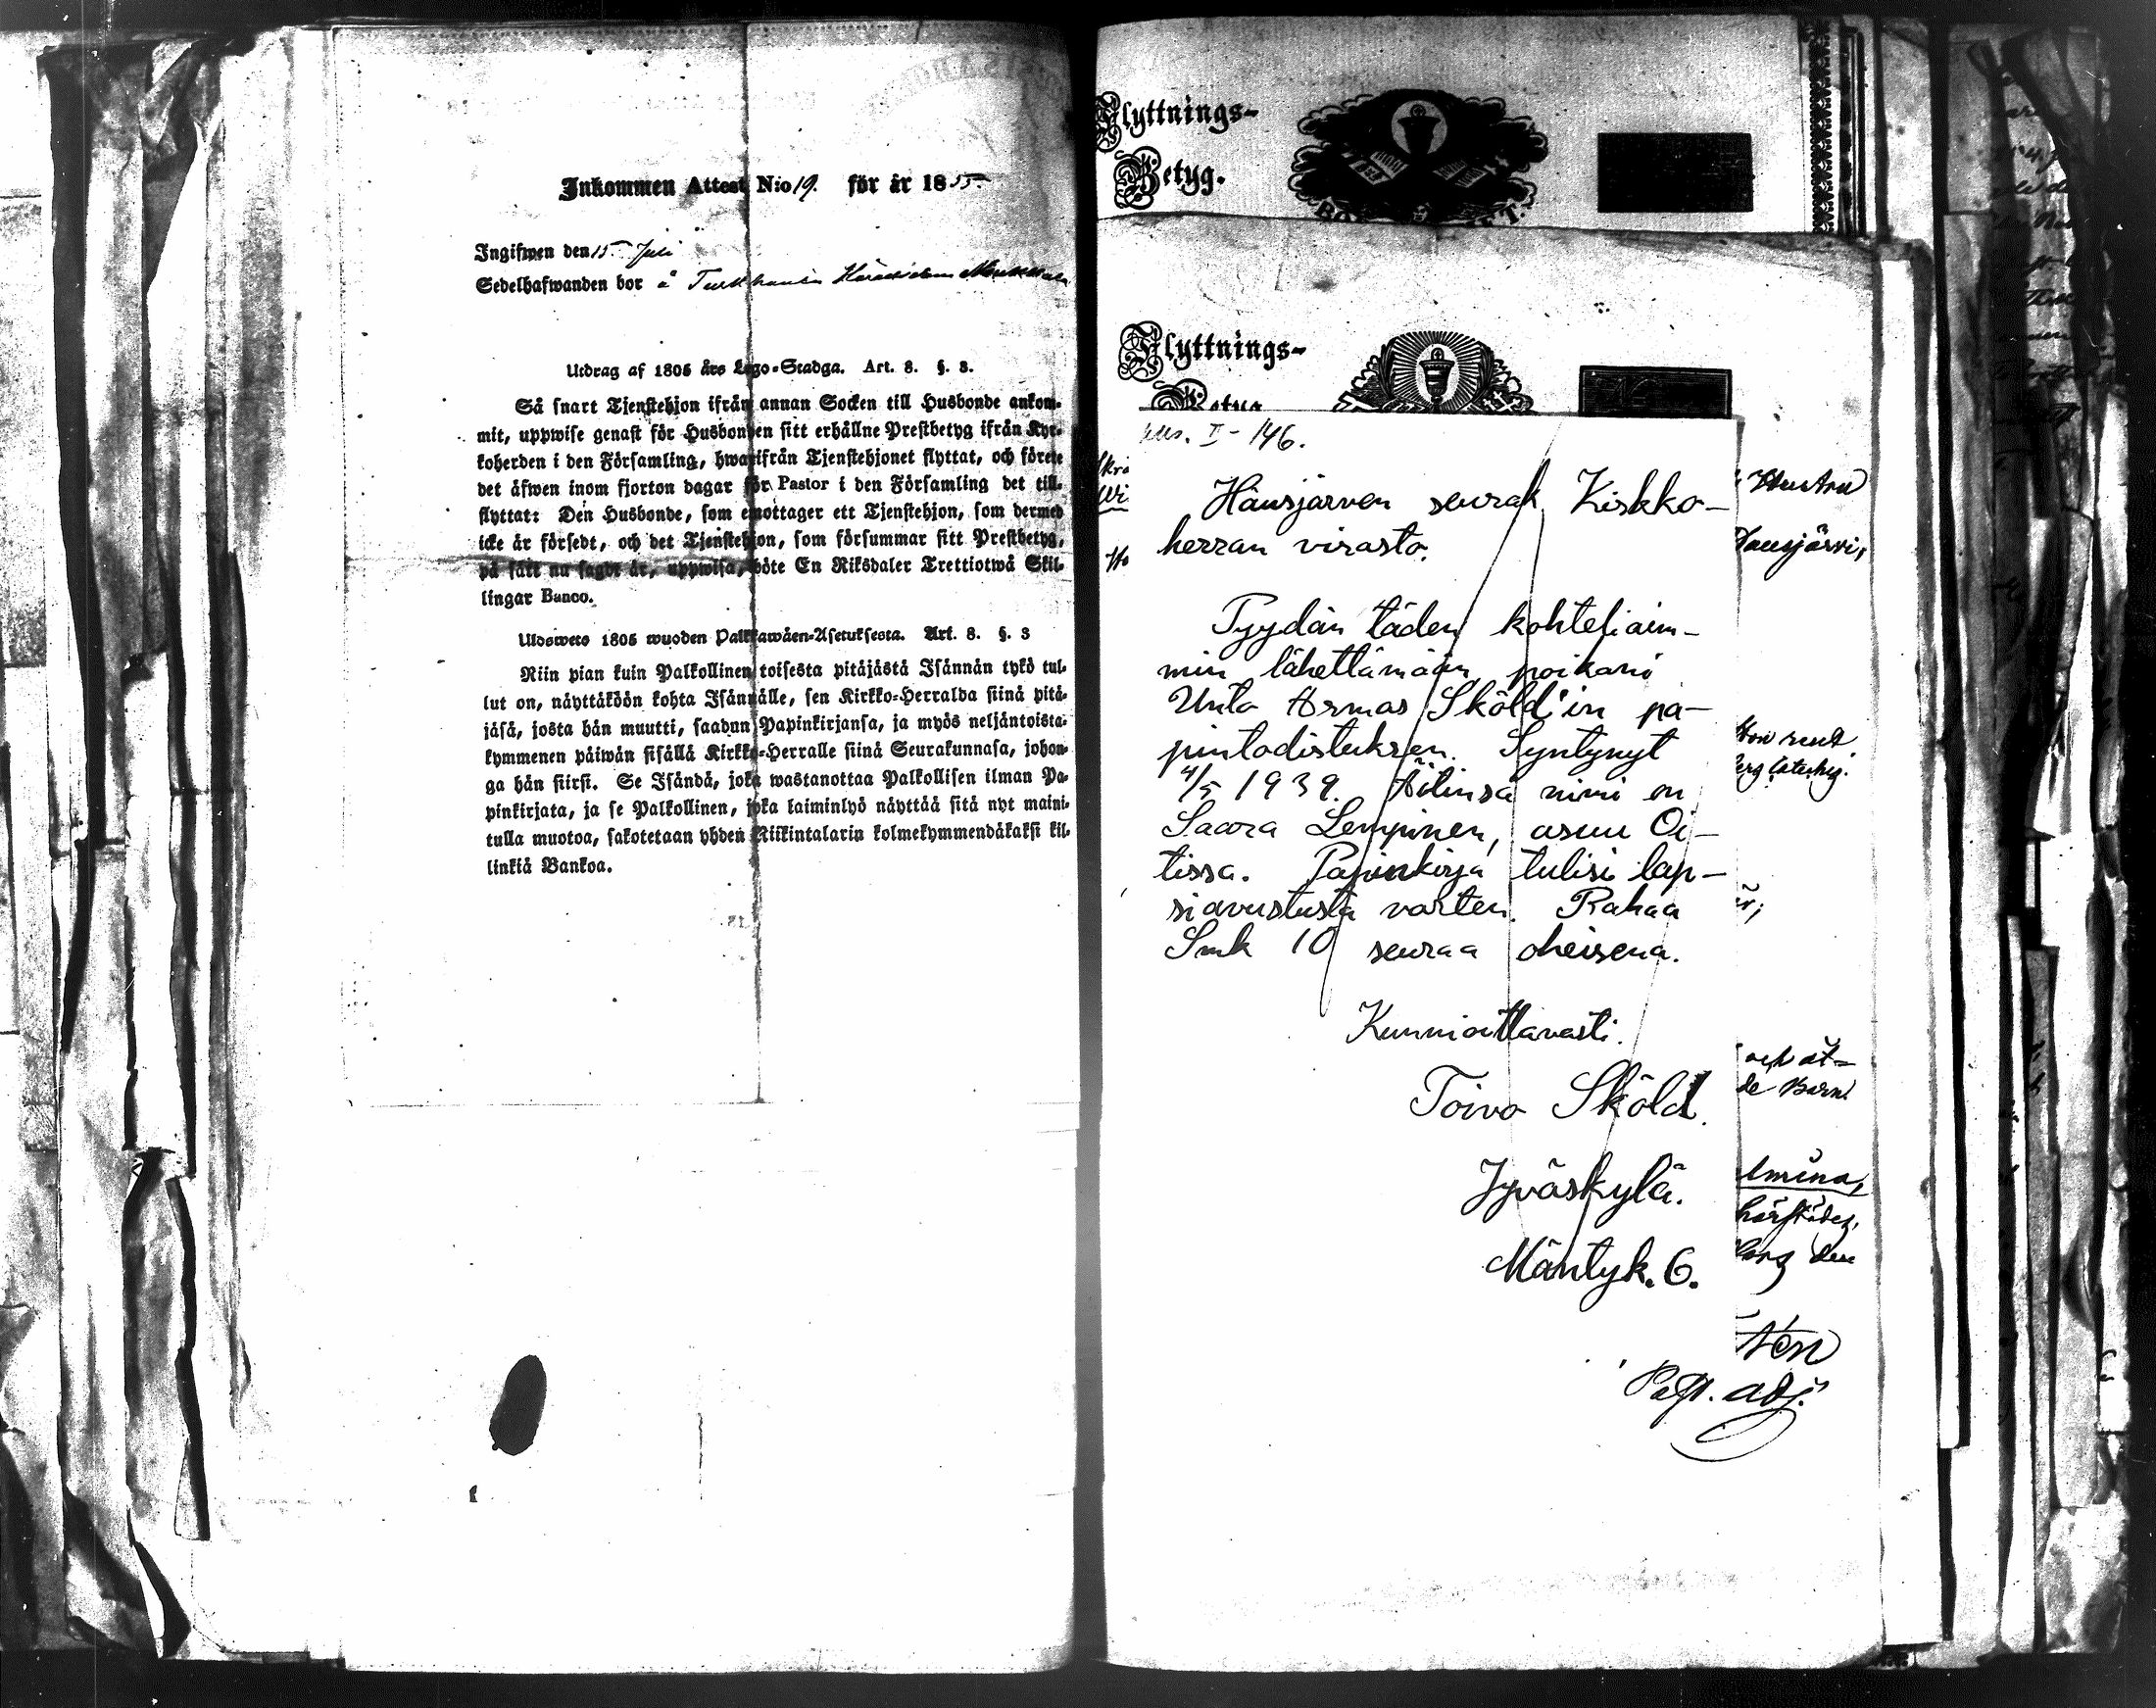 Inkommen Attest Nio 19. för år 1855.
Ingifwen den 15 Juli
Sedelhafwanden bor å
Utdrag af 1805 års Lego-Stadga. Art. 8. §. 3.
Så snart Tjenstehjon ifrån annan Socken till Husbonde ankom-
mit, uppwise genast för Husbonden sitt erhållne Prestbetyg ifrån Kyr-
koherden i den Församling, hwarifrån Tjenstehjonet flyttat, och förete
det äfwen inom fjorton dagar för Pastor i den Församling det till-
flyttat: Den Husbonde, som emottager ett Tjenstehjon, som dermed
icke är försedt, och det Tjenstehjon, som försummar sitt Prestbetyg,
på sätt nu sagdt är, uppwisa, böte En Riksdaler Trettiotwå Skil-
lingar Banco.
Ulosweto 1805 wuoden Palkkawäen-Asetuksesta. Art. 8. §. 3
Niin pian kuin Palkollinen toisesta pitäjästä Isännän tykö tul-
lut on, näyttäköön kohta Isännälle, sen Kirkko-Herralda siinä pitä-
jäsä, josta hän muutti, saadun Papinkirjansa, ja myös neljäntoista-
kymmenen päiwän sisällä Kirkko-Herralle siinä Seurakunnasa, johon-
ga hän siirsi. Se Isändä, joka wastanottaa Palkollisen ilman Pa-
pinkirjata, ja se Palkollinen, joka laiminlyö näyttää sitä nyt maini-
tulla muotoa, sakotetaan yhden Riikintalarin kolmekymmendäkaksi kil-
linkiä Bankoa.
Flyttnings-
Betyg.
Flyttnings-
Betyg
II - 146.
Hausjärven seurak. Kirkko-
herran virasto.
Pyydän täden kohteliaim-
min lähettämään poikani
Unto Armas Sköld'in pa-
pintodistuksen. Syntynyt
4/5 1939. Äitinsä nimi on
Saara Lempinen, asuu Oi-
tissa. Papinkirja tulisi lap-
siavustusta varten. Rahaa
Smk 10 seuraa oheisena.
Kunnioittavasti.
Toivo Sköld.
Jyväskylä.
Mäntyk. 6.
Hustru
Hausjärvi,
och åt-
de Barn
lmina,
den
Past. adj.